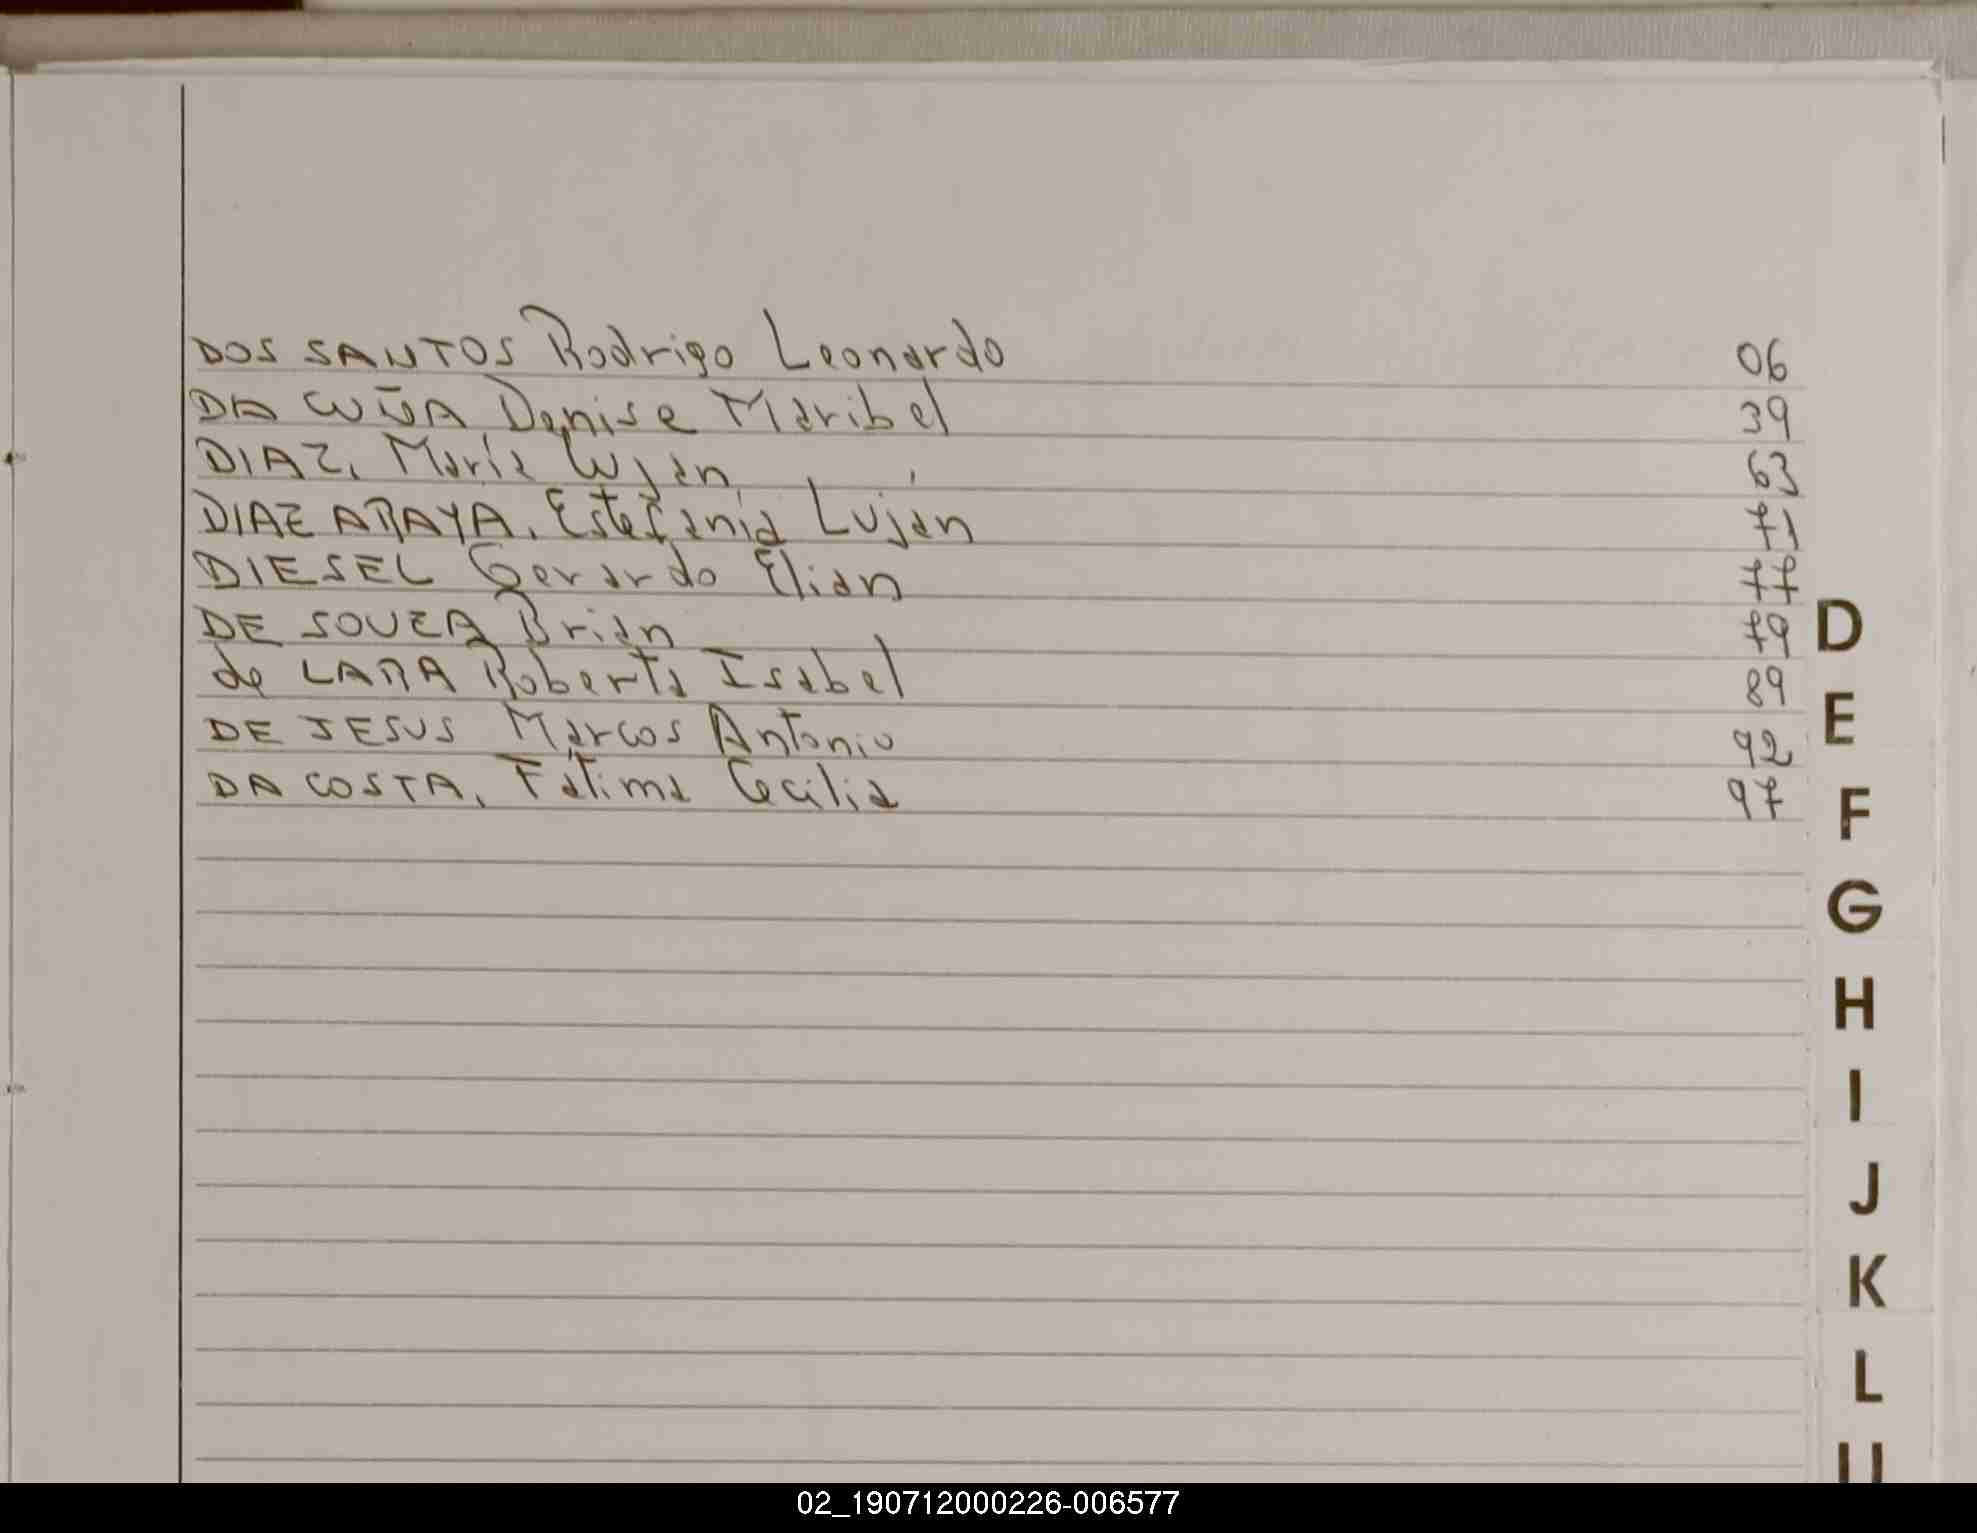 DOS SANTOS Rodrigo Leonardo 06
DA CUÑA Denise Maribel 39
DIAZ, María Luján 63
DIAZ ARAYA, Estefanía Luján 71
DIESEL Gerardo Elian 77
DE SOUZA Brian 79
de LARA Roberta Isabel 89
DE JESUS Marcos Antonio 92
DA COSTA, Fátima Cecilia 97
D
E
F
G
H
I
J
K
L
02_190712000226-006577